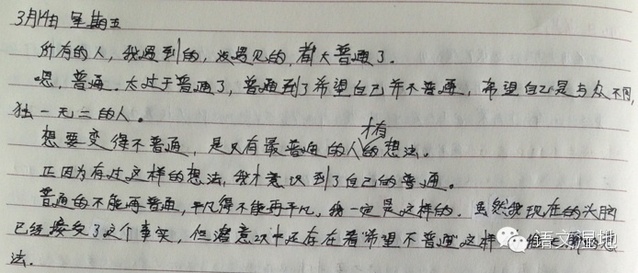 3月14日 星期五
所有的人,我遇到的,没遇见的,都太普通了。
嗯,普通。太过于普通了,普通到了希望自己并不普通,希望自己是与众不同,
独一无二的人。
想要变得不普通,是只有最普通的人才有的想法。
正因为有过这样的想法,我才意识到了自己的普通。
普通的不能再普通,平凡得不能再平凡,我一定是这样的。虽然我现在的头脑
已经接受了这个事实,但潜意识中还存在着“希望不普通”这样
法。
语文湿地